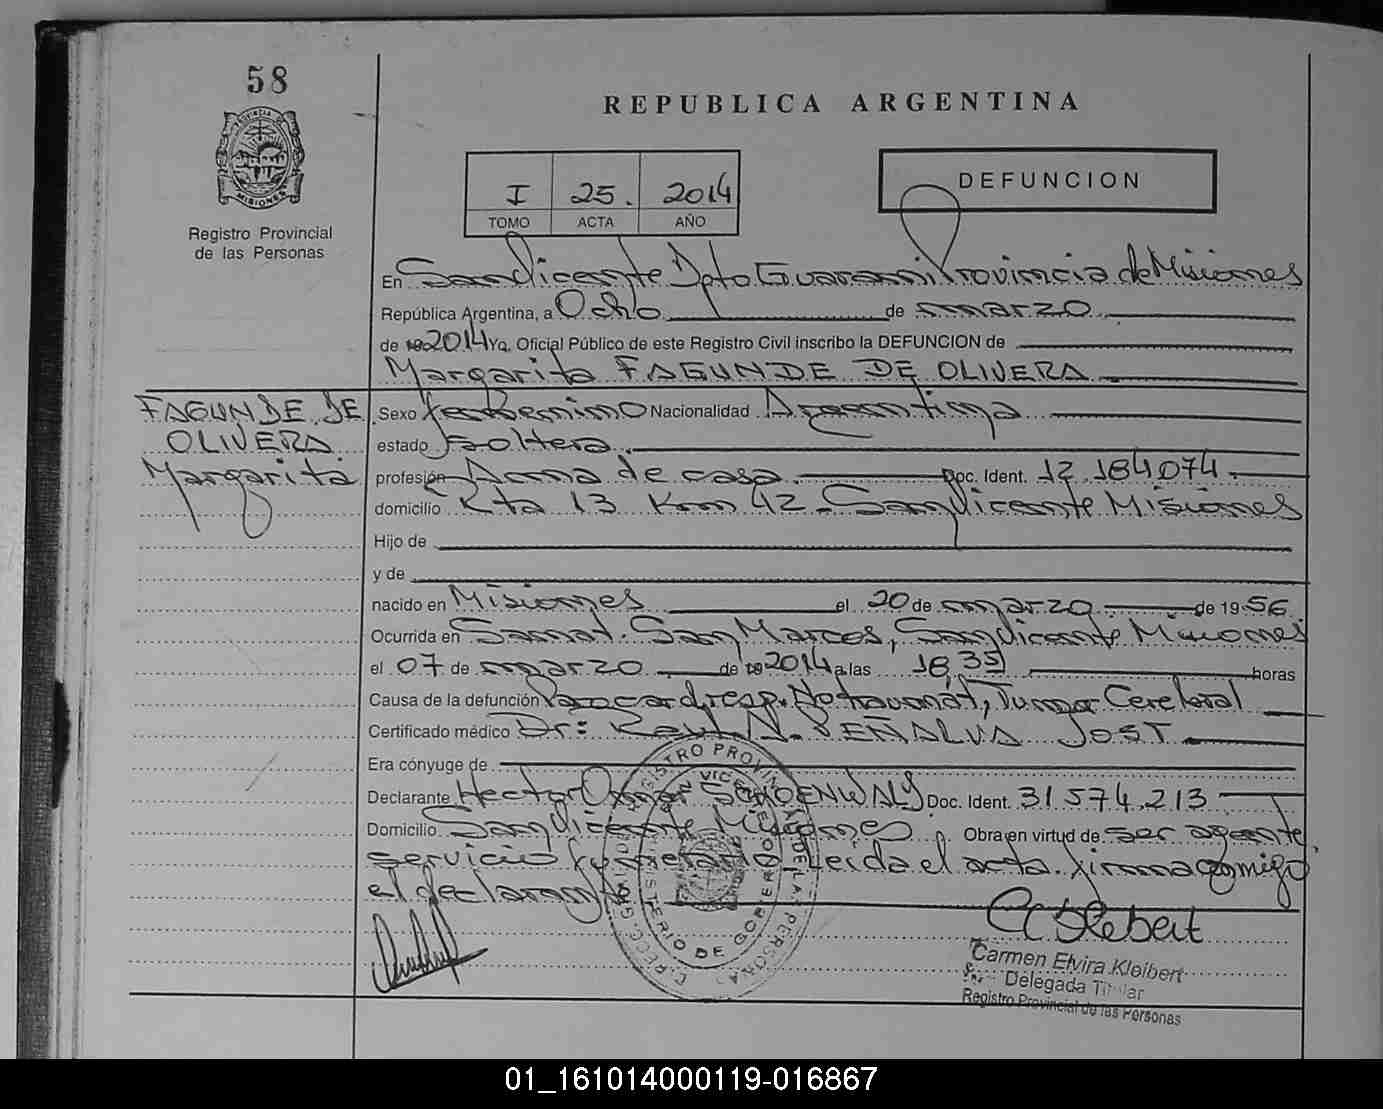 58
REPUBLICA ARGENTINA
MISIONES
Registro Provincial
de las Personas
I 25. 2014
TOMO ACTA AÑO
DEFUNCION
En San Vicente Dpto Guarani Provincia de Misiones
República Argentina, a Ocho de marzo
de 19 2014 Yo. Oficial Público de este Registro Civil inscribo la DEFUNCION de
Margarita FAGUNDE DE OLIVERA
FAGUNDE DE
OLIVERA
Margarita
Sexo femenino Nacionalidad Argentina
estado soltera
profesión Ama de casa Doc. Ident. 12.184.074
domicilio Rta 13 Km 42 - San Vicente Misiones
Hijo de
y de
nacido en Misiones el 20 de marzo de 1956
Ocurrida en Sanat. San Marcos, San Vicente Misiones
el 07 de marzo de 19 2014 a las 18,35 horas
Causa de la defunción Paro card. resp. No traumát, Tumor Cerebral
Certificado médico Dr: Raul A. PEÑALVA JOST
Era cónyuge de
Declarante Hector Omar SCHOENWALY Doc. Ident. 31.574.213
Domicilio San Vicente Misiones Obra en virtud de ser agente
servicio funerario, Leída el acta firma conmigo
el declarante
REGISTRO PROVINCIAL DE LAS PERSONAS
SAN VICENTE
MINISTERIO DE GOBIERNO
Carmen Elvira Kleibert
Delegada Titular
Registro Provincial de las Personas
01_161014000119-016867